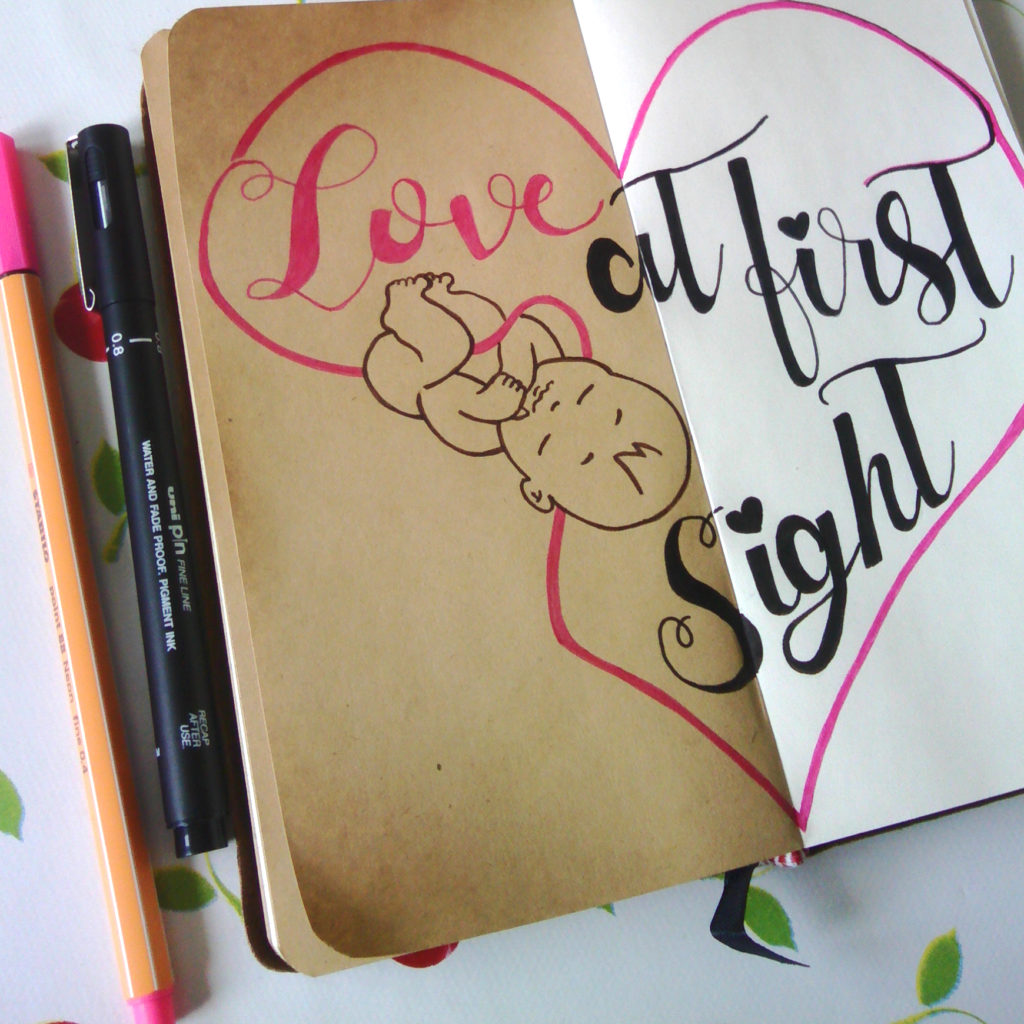 Love
at first
Sight
STABILO point 88 Neon fine 0.4
0.8
uni pin FINE LINE
WATER AND FADE PROOF, PIGMENT INK
RECAP
AFTER
USE.